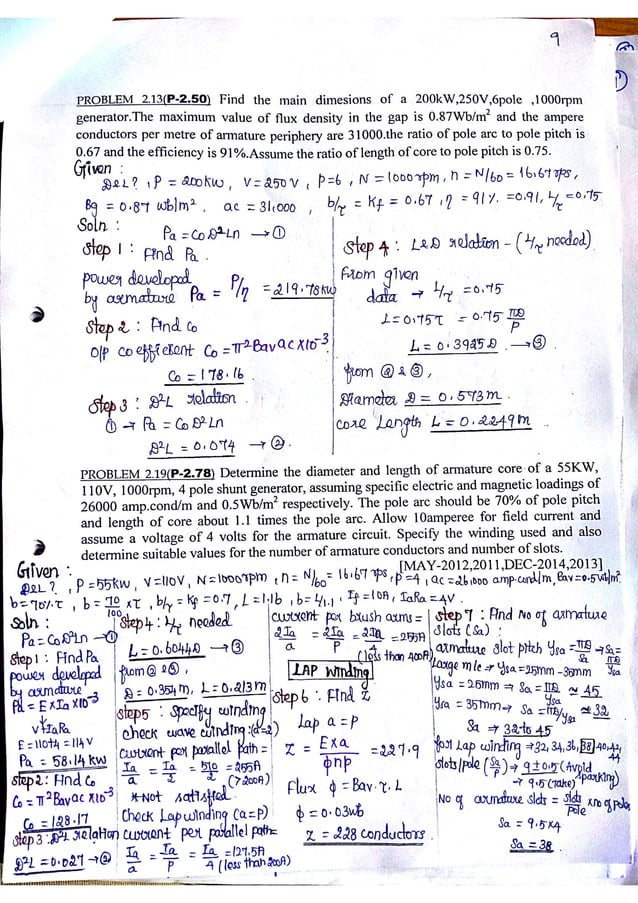 9
PROBLEM 2.13(P-2.50) Find the main dimesions of a 200kW,250V,6pole ,1000rpm
generator.The maximum value of flux density in the gap is 0.87Wb/m² and the ampere
conductors per metre of armature periphery are 31000.the ratio of pole arc to pole pitch is
0.67 and the efficiency is 91%.Assume the ratio of length of core to pole pitch is 0.75.
Given :
D&L ? , P = 200kW , V = 250V , p=6 , N = 1000rpm, n = N/60 = 16.67rps,
Bg = 0.87 wb/m² . ac = 31,000 , b/τ = Kf = 0.67 , η = 91% = 0.91, L/τ = 0.75
Soln :
Pa = CoD²Ln → ①
Step 1 : Find Pa.
power developed
by armature Pa = P/η = 219.78kW
Step 2 : Find Co
O/P coefficient Co = π²Bav ac X10⁻³
Co = 178.16
Step 3 : D²L relation.
① → Pa = CoD²Ln
D²L = 0.074 → ②
Step 4 : L&D relation - (L/τ needed)
From given
data → L/τ = 0.75
L = 0.75τ = 0.75 πD/P
L = 0.3925D → ③
from ② & ③,
Diameter D = 0.573m
core Length L = 0.2249m
PROBLEM 2.19(P-2.78) Determine the diameter and length of armature core of a 55KW,
110V, 1000rpm, 4 pole shunt generator, assuming specific electric and magnetic loadings of
26000 amp.cond/m and 0.5Wb/m² respectively. The pole arc should be 70% of pole pitch
and length of core about 1.1 times the pole arc. Allow 10amperee for field current and
assume a voltage of 4 volts for the armature circuit. Specify the winding used and also
determine suitable values for the number of armature conductors and number of slots.
[MAY-2012,2011,DEC-2014,2013]
Given :
D&L ? , P = 55kW , V=110V , N=1000rpm , n = N/60 = 16.67rps , p=4 , ac = 26,000 amp.cond/m, Bav=0.5wb/m².
b=70%.τ , b = 70/100 ×τ , b/τ = Kf = 0.7 , L=1.1b , b = L/1.1 , If = 10A , IaRa = 4V.
Soln :
Pa = CoD²Ln → ①
Step 1 : Find Pa
power developed
by armature
Pa = E×Ia×10⁻³
V+IaRa
E = 110+4 = 114V
Pa = 58.14kW
Step 2 : Find Co
Co = π²Bav ac X10⁻³
Co = 128.17
Step 3 : D²L relation
D²L = 0.027 → ②
Step 4 : L/τ needed
L = 0.6044D → ③
from ② & ③,
D = 0.354m, L = 0.213m
Step 5 : Specify winding
check wave winding : (a=2)
Current per parallel path =
Ia/a = Ia/2 = 510/2 = 255A
(>200A)
* Not satisfied.
Check Lap winding (a=p)
current per parallel path =
Ia/a = Ia/P = Ia/4 = 127.5A
(less than 200A)
current per brush arms =
2Ia/a = 2Ia/P = 2Ia/4 = 255A
(less than 400A)
LAP Winding
Step 6 : Find Z
Lap a = p
Z = E×a/φnp = 227.9
Flux φ = Bav. τ. L
φ = 0.03wb
Z = 228 conductors.
Step 7 : Find No of armature
Slots (Sa) :
armature slot pitch ysa = πD/Sa → Sa = πD/ysa
ysa = 25mm - 35mm
ysa = 25mm → Sa = πD/ysa ≃ 45
ysa = 35mm → Sa = πD/ysa ≃ 32
Sa → 32 to 45
for Lap winding → 32, 34, 36, 38, 40, 42, 44
slots/pole (Sa/P) → 9 ± 0.5 (Avoid sparking)
→ 9.5 (take)
No of armature slots = slots/pole x no of poles
Sa = 9.5×4
Sa = 38